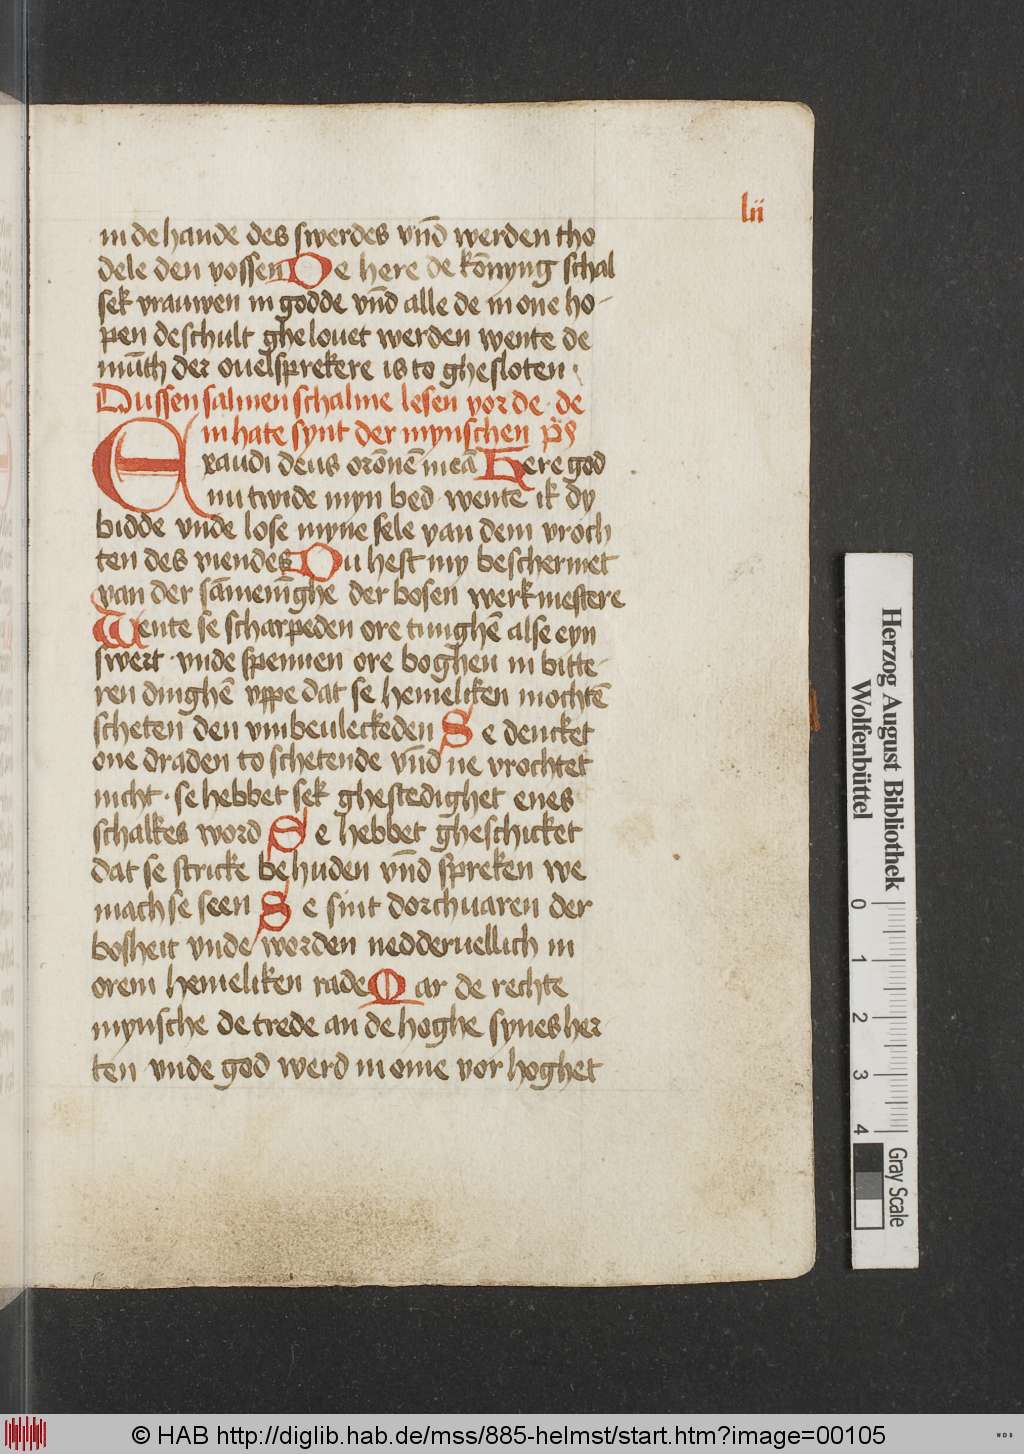 lii
in de hande des swerdes vn̄d werden tho
dele den vossen De here de kōnyng schal
sek vrauwen in godde vn̄d alle de in one ho-
pen de schult ghelouet werden wente de
mūth der ouelsprekere is to ghesloten
Dussen salmen schalme lesen vor de · de
in hate synt der mynschen p̄s
Exaudi deus orōnē meā Here god
nu twide myn bed wente ik dy
bidde vnde lose myne sele van dem vroch
ten des viendes Du hest my beschermet
van der sāmenīghe der bosen werkmestere
Wente se scharpeden ore tunghē alse eyn
swert · vnde spennen ore boghen in bitte-
ren dinghē vppe dat se hemeliken mochtē
scheten den vmbeuleckeden Se dencket
one draden to schetende vn̄d ne vrochtet
nicht · se hebbet sek ghestedighet enes
schalkes word Se hebbet gheschicket
dat se stricke behuden vn̄d spreken we
mach se seen Se sint dorchuaren der
bosheit vnde worden nedderuellich in
orem hemeliken rade Dar de rechte
mynsche de trede an de hoghe synes her
ten vnde god werd in ome vorhoghet
Herzog August Bibliothek
Wolfenbüttel
0 1 2 3 4
Gray Scale
© HAB http://diglib.hab.de/mss/885-helmst/start.htm?image=00105